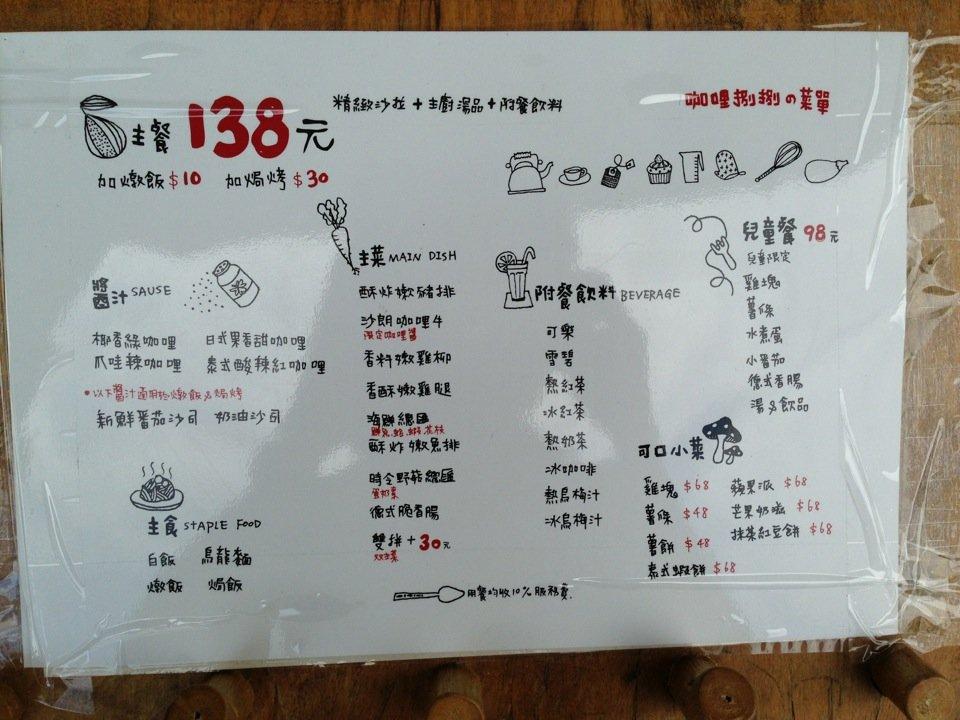 主餐 138元
精緻沙拉+主廚湯品+附餐飲料
加燉飯$10 加焗烤$30
咖哩捌捌の菜單
將鹵汁 SAUSE
椰香綠咖哩 日式果香甜咖哩
爪哇辣咖哩 泰式酸辣紅咖哩
*以下醬汁適用於燉飯&焗烤
新鮮番茄沙司 奶油沙司
主食 STAPLE FOOD
白飯 烏龍麵
燉飯 焗飯
主菜 MAIN DISH
酥炸嫩豬排
沙朗咖哩牛
限定咖哩醬
香料嫩雞柳
香酥嫩雞腿
海鮮總匯
鮮魚.蛤.蝦.花枝
酥炸嫩魚排
時令野菇總匯
蛋奶素
德式脆香腸
雙拼+30元
雙主菜
附餐飲料 BEVERAGE
可樂
雪碧
熱紅茶
冰紅茶
熱奶茶
冰咖啡
熱烏梅汁
冰烏梅汁
兒童餐 98元
兒童限定
雞塊
薯條
水煮蛋
小番茄
德式香腸
湯&飲品
可口小菜
雞塊 $68 蘋果派 $68
薯條 $48 芒果奶酪 $68
薯餅 $48 抹茶紅豆餅 $68
泰式蝦餅 $68
用餐均收10%服務費.